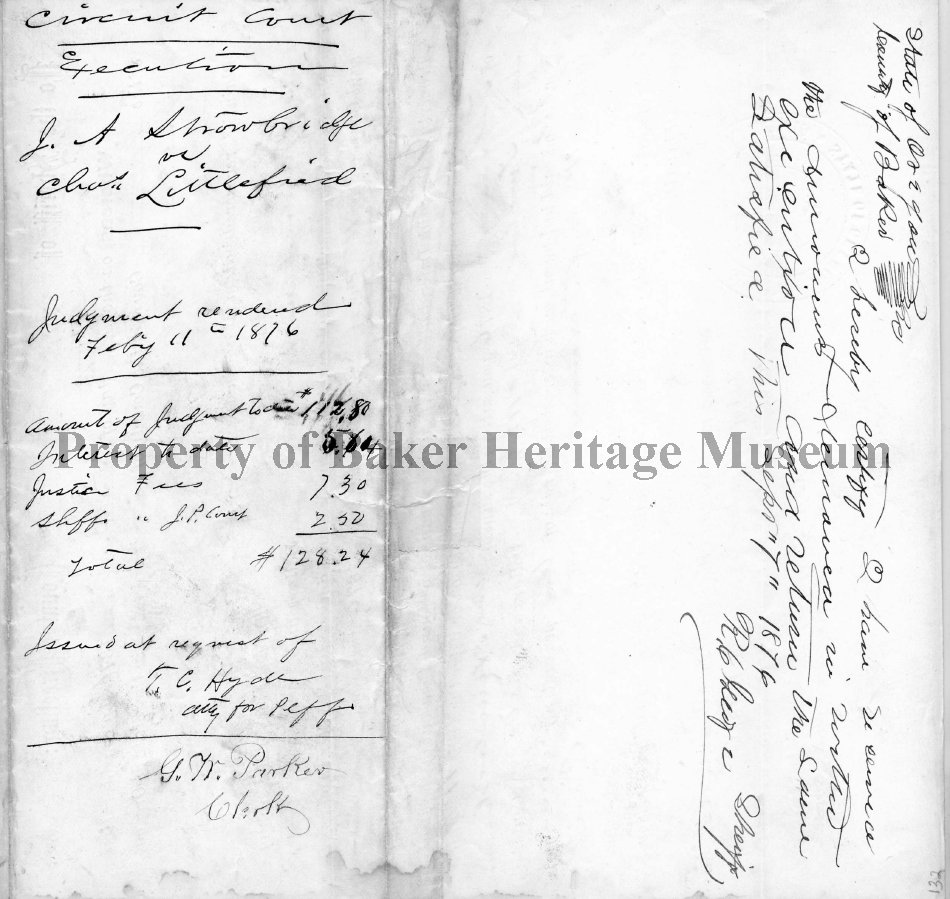 Circuit Court
Execution
J. A Strowbridge
vs
Chas Littlefield
Judgment rendered
Feby 11th 1876
Amount of Judgment to date $112,80
Interest to date 5,64
Justice Fees 7.30
Shffs " J.P. Court 2.50
Total $128.24
Issued at request of
T. C. Hyde
atty for Plff
G. W. Parker
Clk
State of Oregon
County of Baker ss
I hereby certify I have received
the amount demanded in within
execution and return the same
Satisfied. This Sept "7" 1876
Sheriff
Property of Baker Heritage Museum
132